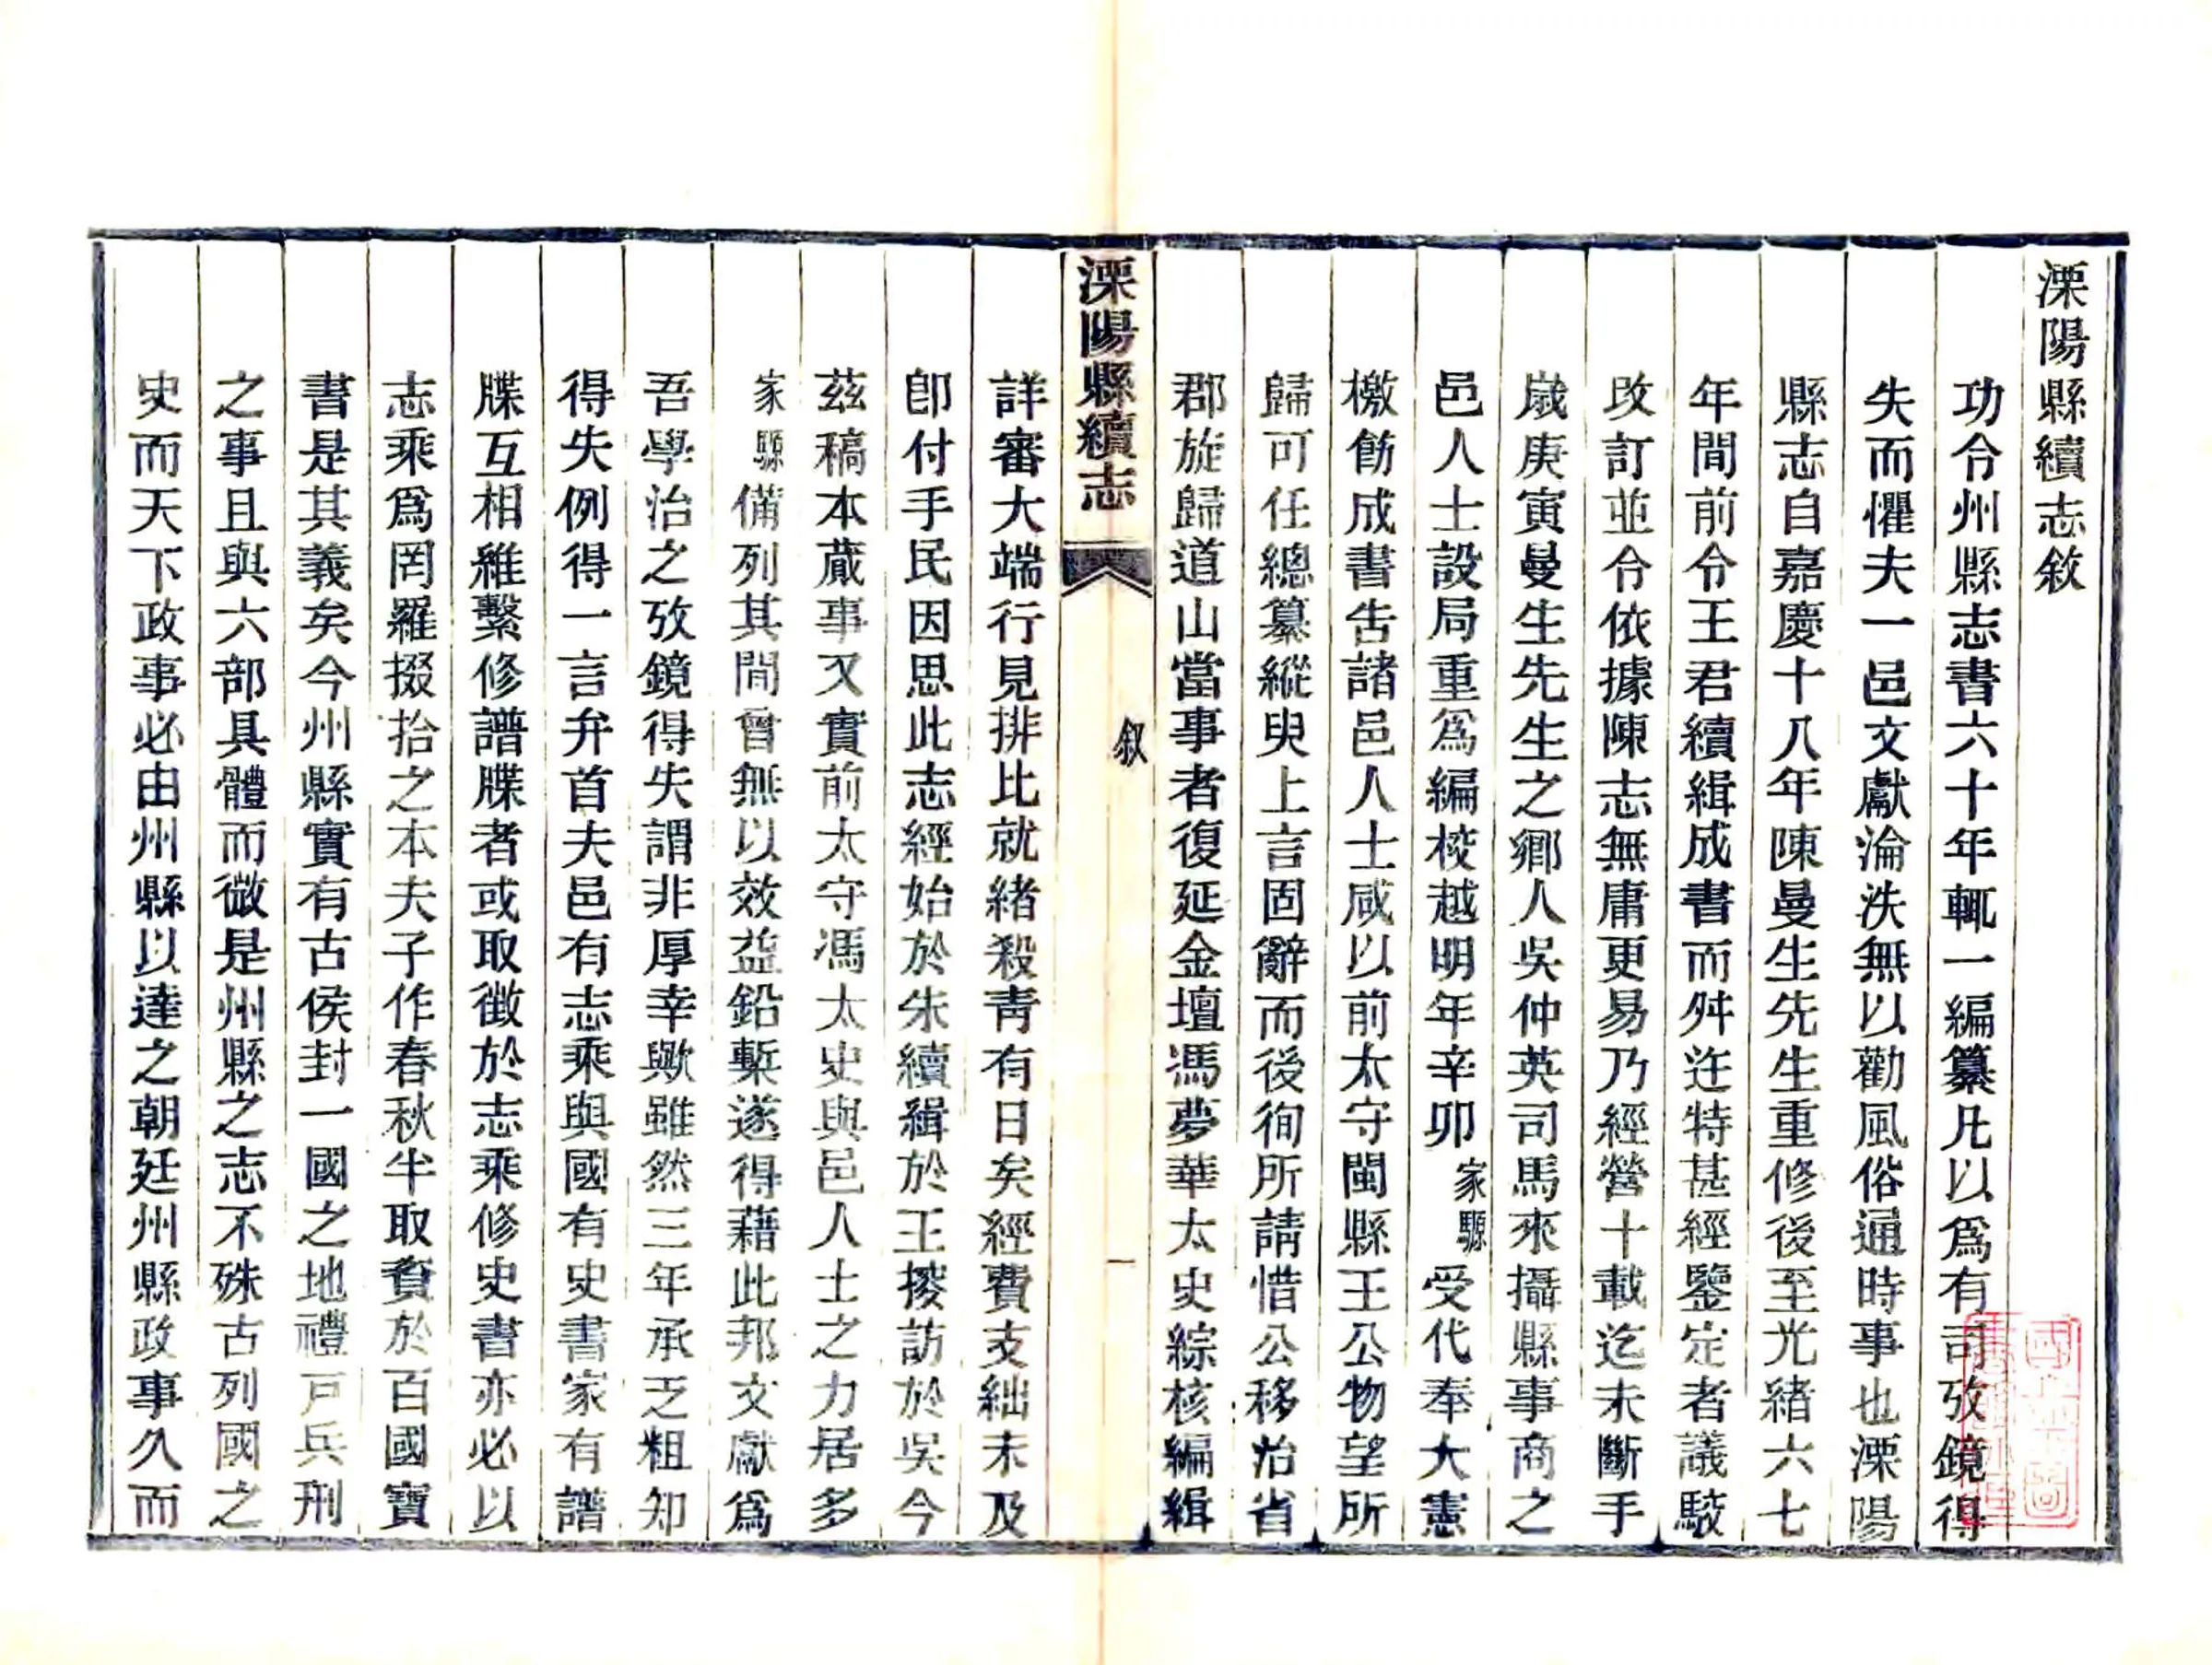 溧陽縣續志敘
功令州縣志書六十年輒一編纂凡以爲有司攷鏡得
失而懼夫一邑文獻淪泆無以勸風俗通時事也溧陽
縣志自嘉慶十八年陳曼生先生重修後至光緒六七
年間前令王君續緝成書而舛迕特甚經鑒定者議駮
改訂並令依據陳志無庸更易乃經營十載迄未斷手
歲庚寅曼生先生之鄉人吳仲英司馬來攝縣事商之
邑人士設局重爲編校越明年辛卯家騵受代奉大憲
檄飭成書告諸邑人士咸以前太守閩縣王公物望所
歸可任總纂縱臾上言固辭而後徇所請惜公移治省
郡旋歸道山當事者復延金壇馮夢華太史綜核編緝
溧陽縣續志
敘
一
詳審大端行見排比就緒殺青有日矣經費支絀未及
卽付手民因思此志經始於朱續緝於王㨝訪於吳今
茲稿本蕆事又實前太守馮太史與邑人士之力居多
家騵備列其間曾無以效益鉛槧遂得藉此邦文獻爲
吾學治之攷鏡得失謂非厚幸歟雖然三年承乏粗知
得失例得一言弁首夫邑有志乘與國有史書家有譜
牒互相維繫修譜牒者或取徵於志乘修史書亦必以
志乘爲罔羅掇拾之本夫子作春秋半取資於百國寶
書是其義矣今州縣實有古侯封一國之地禮戸兵刑
之事且與六部具體而微是州縣之志不殊古列國之
史而天下政事必由州縣以達之朝廷州縣政事久而